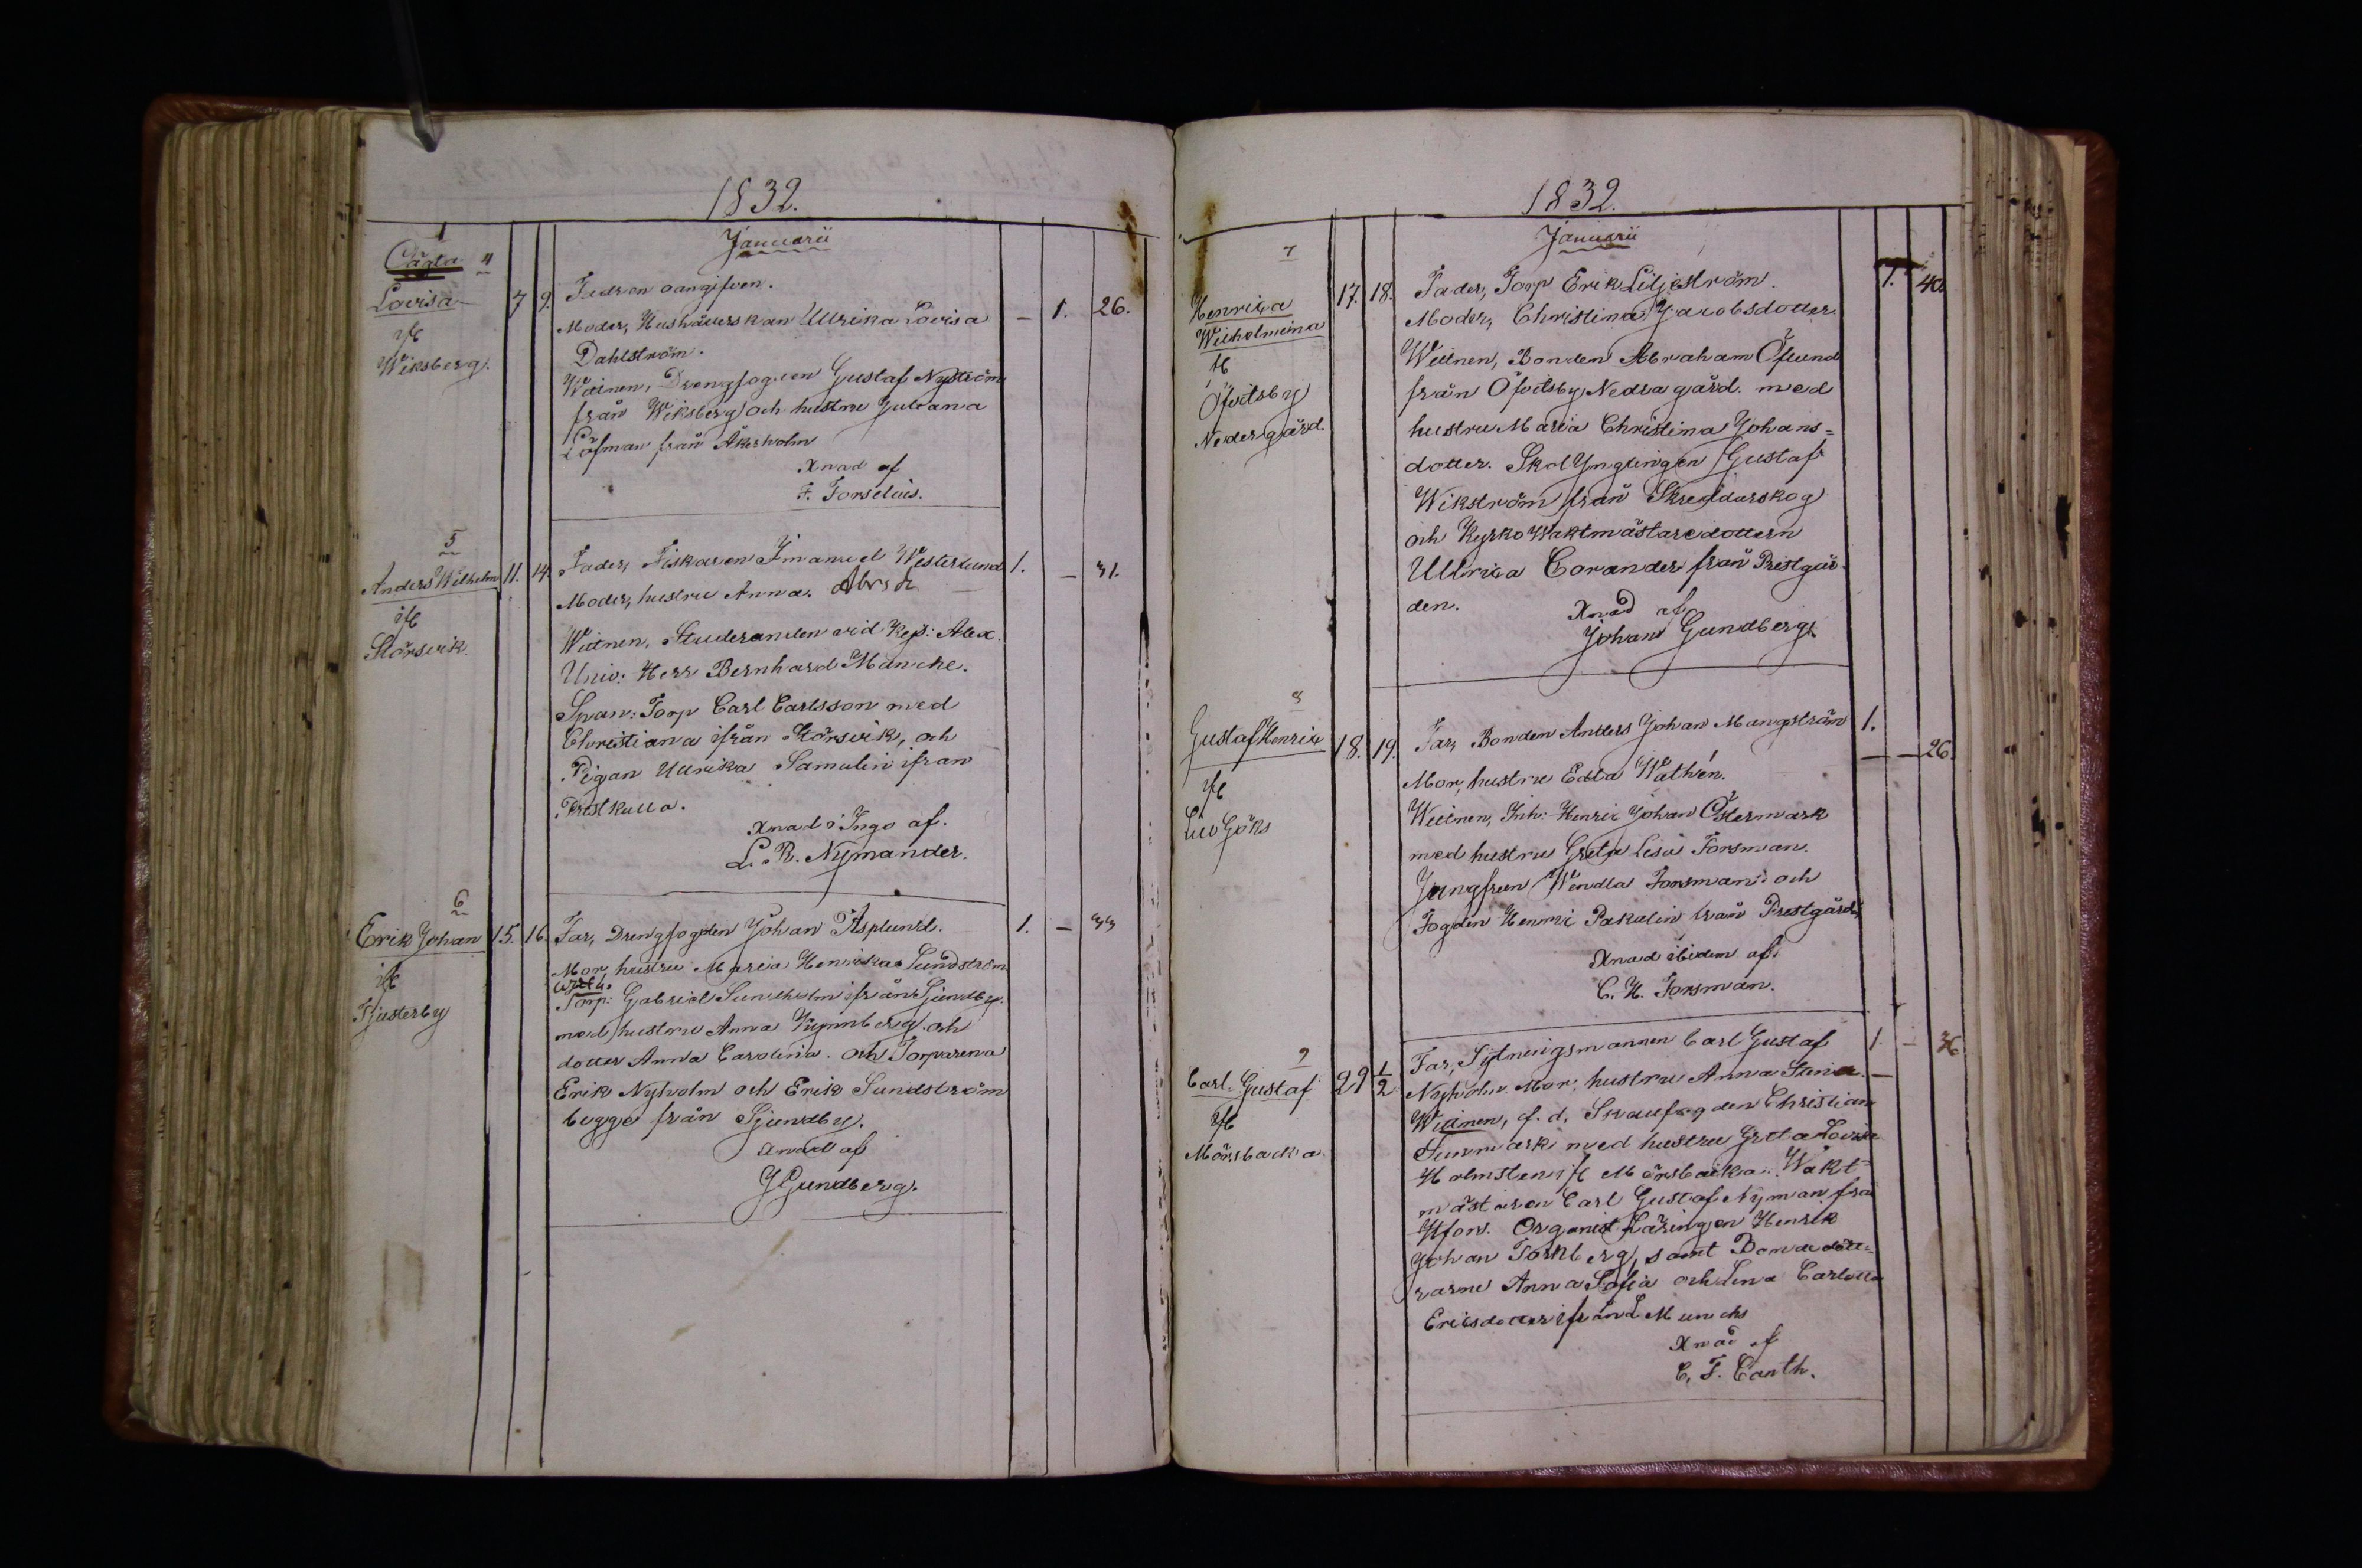 1832.
Januarii
Oägta 4
Lovisa
if
Wiksberg.
7 9. Fadren oangifven.
Moder, Hushållerskan Ullrika Lovisa
Dahlström.
Wittnen, Drengfogden Gustaf Nyström
från Wiksberg och hustru Juliana
Löfman från Åkerholm
Xnad af
F. Forselius.
— 1. 26.
5
Anders Wilhelm
if
Störsvik.
11. 14. Fader, Fiskaren Imanuel Westerlund
Moder, hustru Anna.
Wittnen, Studeranden vid Kejs: Alex.
Univ: Herr Bernhard Muncke.
Span: Torp Carl Carlsson med
Christiana ifrån Störsvik, och
Pigan Ullrika Samulin ifrån
Prestkulla.
Xnad i Ingo af.
L. R. Nymander.
1. — 31.
6
Erik Johan
if
Tjusterby
15. 16. Far, Drengfogden Johan Asplund.
Mor, hustru Maria Henrika Sundström
Torp: Gabriel Sundholm ifrån Sjundby.
med hustru Anna Kynnberg och
dotter Anna Carolina. och Torparena
Erik Nyholm och Erik Sundström
begge från Sjundby.
Xnad af
JGundberg.
1. — 33
1832.
Januarii
7
Henrica
Wilhelmina
if
Öfvitsby
Nedergård.
17. 18. Fader, Torp Erik Liljeström.
Moder, Christina Jacobsdotter
Wittnen, Bonden Abraham Öflund
från Öfvitsby Nedra gård. med
hustru Maria Christina Johans=
dotter. Skol Ynglingen Gustaf
Wikström från Skreddarskog
och Kyrko Waktmästaredottern
Ullrica Corander från Prestgår-
den.
Xnad af
Johan Gundberg.
1. 40.
8
Gustaf Henric
if
18. 19. Far, Bonden Anders Johan Mangström
Mor, hustru Edla Wathén.
Wittnen, Inh: Henric Johan Östermark
med hustru Greta Lisa Forsman.
Jungfrun Wendla Forsman och
Fogden Henric Pakalin från Prestgård.
Xnad ibidem af.
C. H. Forsman.
1. — — 26.
9
Carl Gustaf
if
Mörsbacka
29 1/2 Far, Sytningsmannen Carl Gustaf
Nyholm. Mor, hustru Anna Stina.
Wittnen, f. d. Skaufogden Christian
Sunnmark med hustru Greta Lovisa
Holmsten if Mörsbacka. Wakt=
mästaren Carl Gustaf Nyman från
Organist Läringen Henrik
Johan Torkberg, samt Bondedött=
rarne Anna Sofia och Lena Carlotta
Ericsdotter ifrån L Muncks
Xnad af
C. F. Canth.
1. — 36